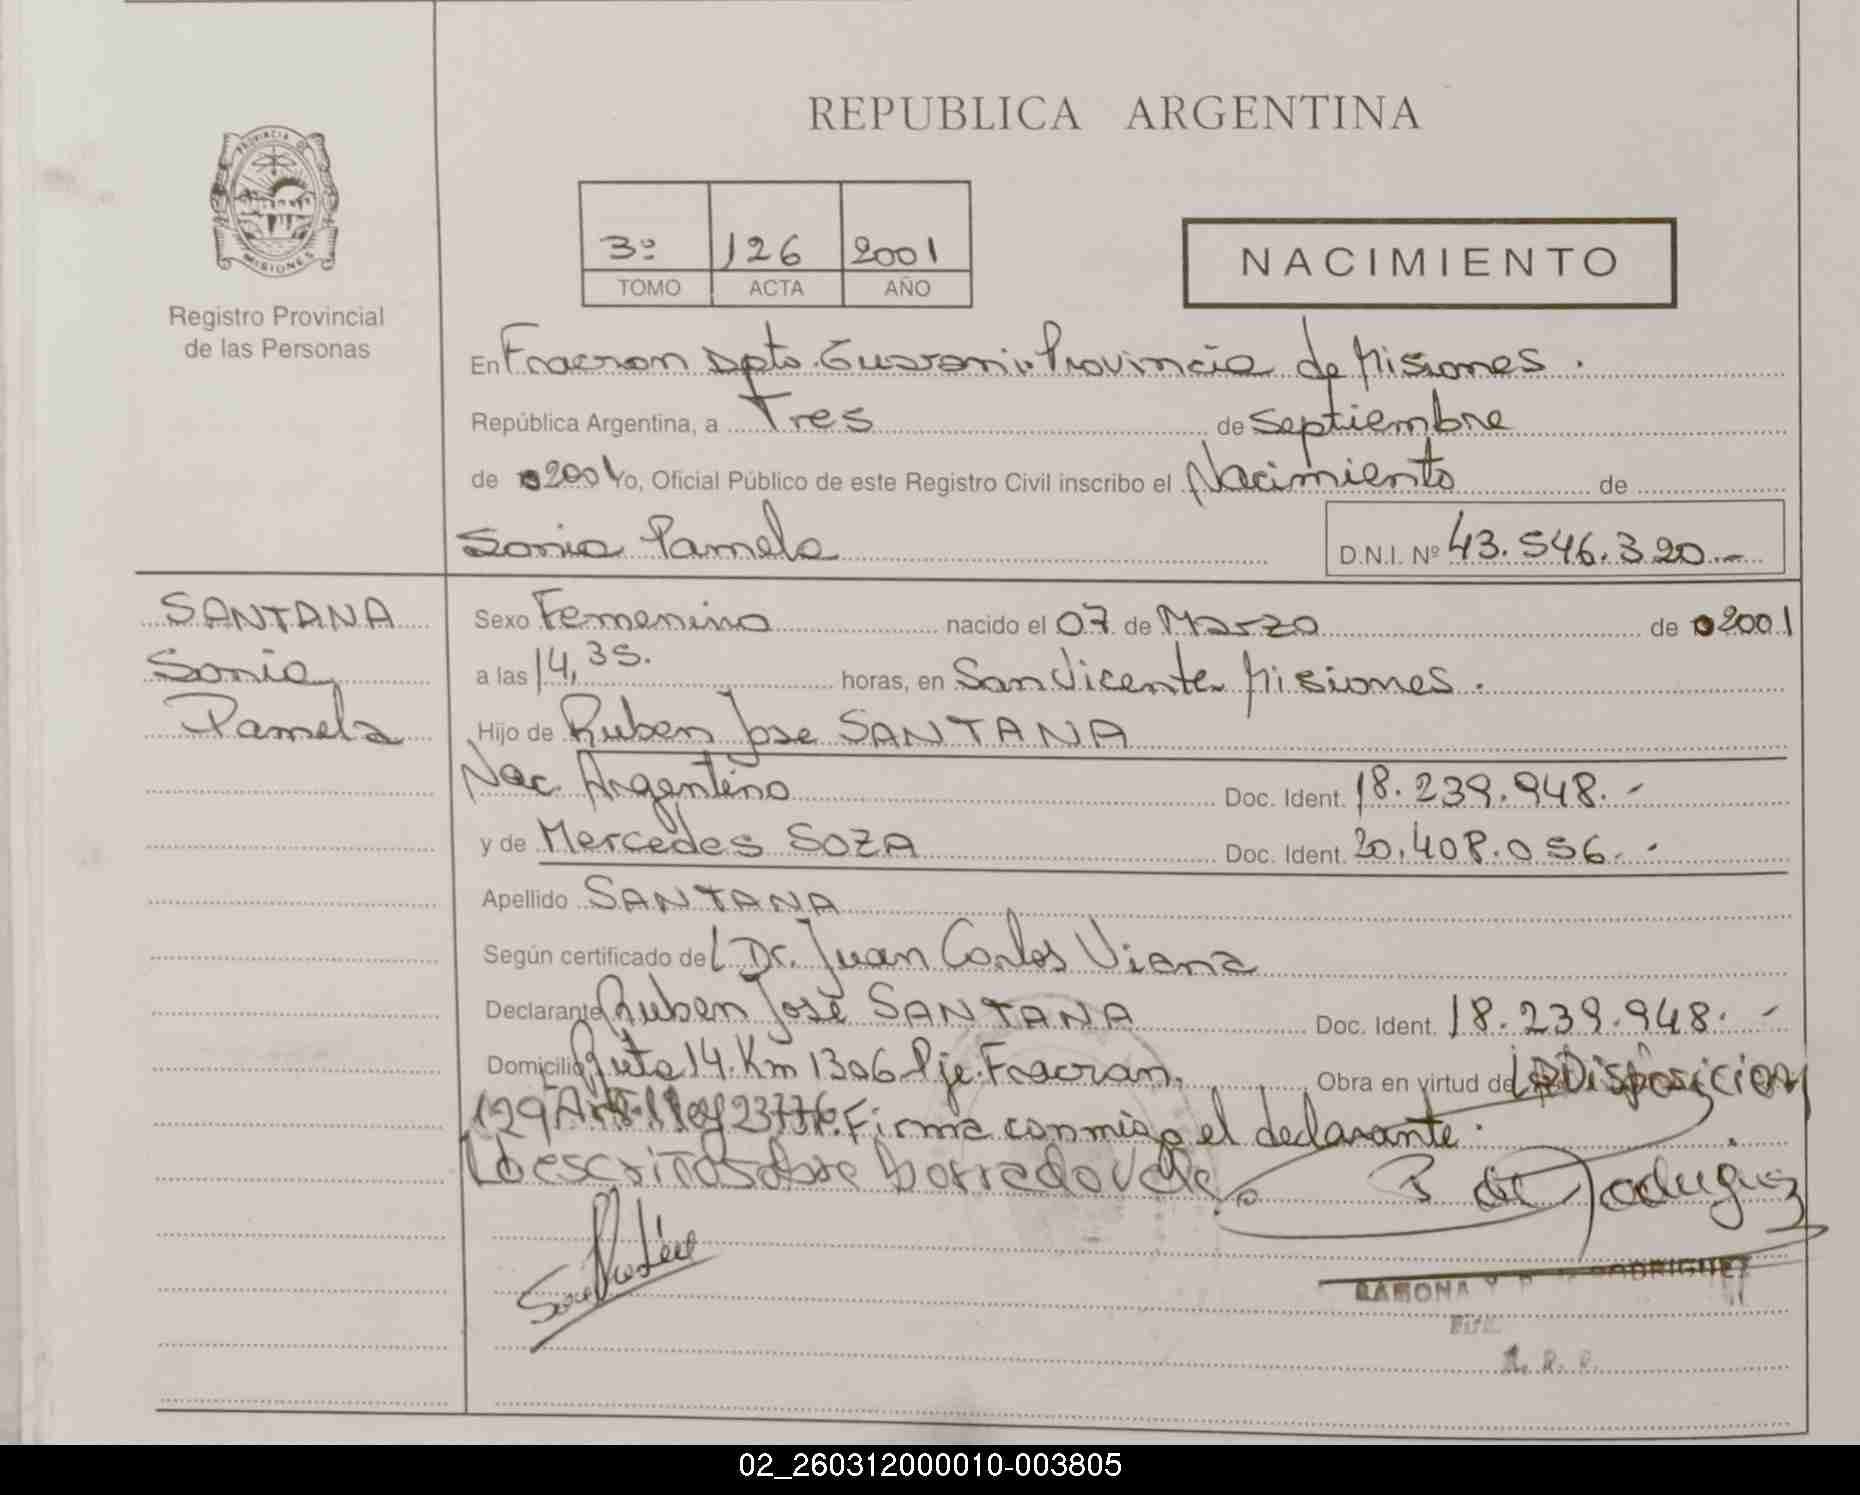 REPUBLICA ARGENTINA
PROVINCIA DE
MISIONES
Registro Provincial
de las Personas
3º 126 2001
TOMO ACTA AÑO
NACIMIENTO
En Fracran Dpto. Guarani. Provincia de Misiones.
República Argentina, a Tres de Septiembre
de 2001 Yo, Oficial Público de este Registro Civil inscribo el Nacimiento de
Sonia Pamela D.N.I. Nº 43.546.320.-
SANTANA
Sonia
Pamela
Sexo Femenino nacido el 07 de Marzo de 2001
a las 14,35. horas, en San Vicente Misiones.
Hijo de Ruben Jose SANTANA
Nac. Argentino Doc. Ident. 18.239.948.-
y de Mercedes SOZA Doc. Ident. 20.408.056.-
Apellido SANTANA
Según certificado del Dr. Juan Carlos Viana
Declarante Ruben José SANTANA Doc. Ident. 18.239.948.-
Domicilio Ruta 14.Km 1306 Pje.Fracran. Obra en virtud de la Disposicion
129 Art. 11 Ley 23776. Firma conmigo el declarante.
Lo escrito sobre borrado Vale.
RAMONA RODRIGUEZ
02_260312000010-003805